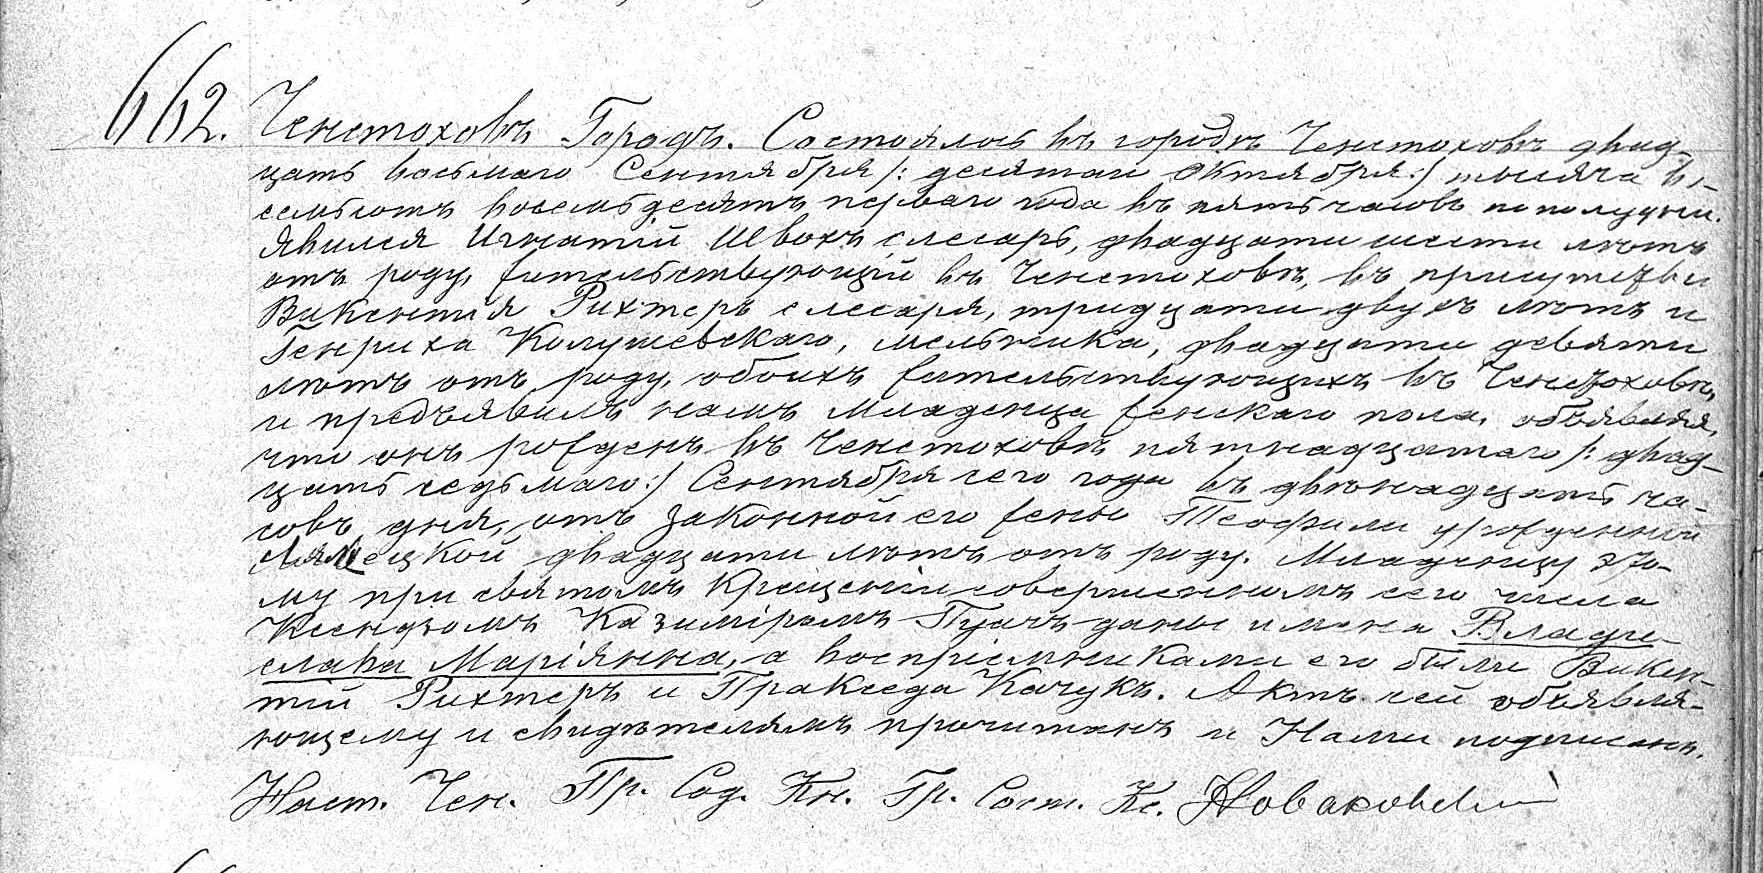 662. Ченстоховъ Городъ. Состоялось въ городѣ Ченстоховѣ двад-
цать восьмаго Сентября /: десятаго Октября :/ тысяча во-
семьсотъ восемьдесятъ перваго года въ пять часовъ пополудни.
Явился Игнатій Швохъ слесарь, двадцати шести лѣтъ
отъ роду, жительствующій въ Ченстоховѣ, въ присутствіи
Викентія Рихтеръ слесаря, тридцати двухъ лѣтъ и
Генриха Колушевскаго, мельника, двадцати девяти
лѣтъ отъ роду, обоихъ жительствующихъ въ Ченстоховѣ,
и предъявилъ намъ младенца женскаго пола, объявляя,
что онъ рожденъ въ Ченстоховѣ пятнадцатаго /: двад-
цать седьмаго :/ Сентября сего года въ двѣнадцать ча-
совъ дня, отъ законной его жены Теофили урожденной
двадцати лѣтъ отъ роду. Младенцу это-
му при святомъ Крещеніи совершенномъ сего числа
Ксендзомъ Казиміромъ Пучъ даны имена Влади-
слава Маріянна, а воспріемниками его были Викен-
тій Рихтеръ и Пракседа Качукъ. Актъ сей объявля-
ющему и свидѣтелямъ прочитанъ и Нами подписанъ.
Наст. Чен. Пр. Сод. Кн. Гр. Сост. Кс. Новаковскій